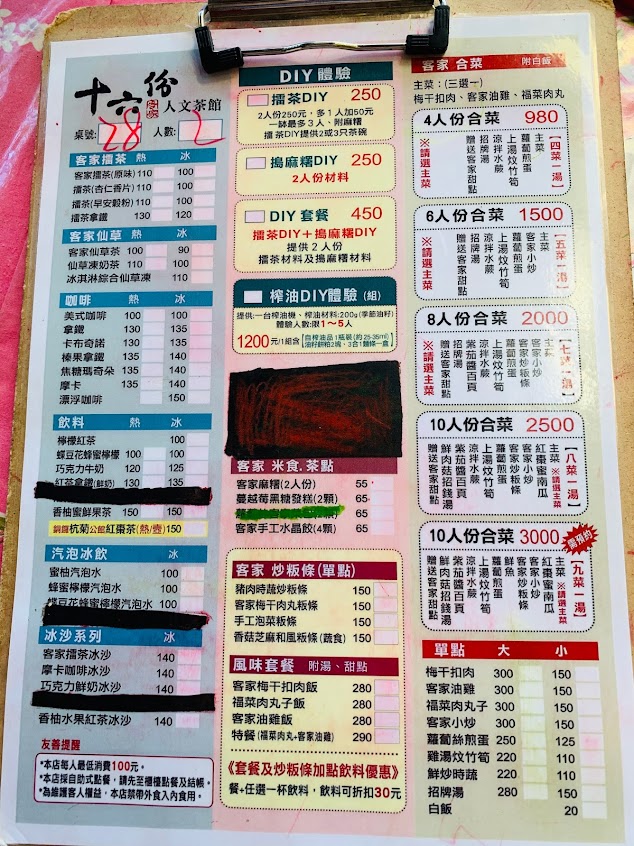 十六份
客家
人文茶館
桌號: 28 人數: 2
客家擂茶 熱 冰
客家擂茶(原味) 110 100
擂茶(杏仁香片) 110 100
擂茶(早安穀粉) 110 100
擂茶拿鐵 130 120
客家仙草 熱 冰
客家仙草茶 100 90
仙草凍奶茶 110 100
冰淇淋綜合仙草凍 110
咖啡 熱 冰
美式咖啡 100 100
拿鐵 130 135
卡布奇諾 130 135
榛果拿鐵 135 140
焦糖瑪奇朵 135 140
摩卡 135 140
漂浮咖啡 150
飲料 熱 冰
檸檬紅茶 100
蝶豆花蜂蜜檸檬 100 100
巧克力牛奶 120 125
紅茶拿鐵(鮮奶) 130 135
香柚蜜鮮果茶 150 150
銅鑼杭菊公館紅棗茶(熱/壺) 150
汽泡冰飲 冰
蜜柚汽泡水 100
蜂蜜檸檬汽泡水 100
蝶豆花蜂蜜檸檬汽泡水 100
冰沙系列 冰
客家擂茶冰沙 140
摩卡咖啡冰沙 140
巧克力鮮奶冰沙 140
香柚水果紅茶冰沙 140
友善提醒
*本店每人最低消費100元。
*本店採自助式點餐，請先至櫃檯點餐及結帳。
*為維護客人權益，本店禁帶外食入內食用。
DIY 體驗
擂茶DIY 250
2人份250元，多1人加50元
一缽最多3人、附麻糬
擂茶DIY提供2或3只茶碗
搗麻糬DIY 250
2人份材料
DIY 套餐 450
擂茶DIY＋搗麻糬DIY
提供 2 人份
擂茶材料及搗麻糬材料
榨油DIY體驗 (組)
提供:一台榨油機、榨油材料:200g(季節油籽)
體驗人數:限1～5人
1200元/1組含
自榨油品1瓶裝(約25-35ml)
油籽餅粕2塊、3合1麵條一盒
客家 米食.茶點
客家麻糬(2人份) 55
蔓越莓黑糖發糕(2顆) 65
65
客家手工水晶餃(4顆) 65
客家 炒粄條(單點)
豬肉時蔬炒粄條 150
客家梅干肉丸粄條 150
手工泡菜粄條 150
香菇芝麻和風粄條(蔬食) 150
風味套餐 附湯、甜點
客家梅干扣肉飯 280
福菜肉丸子飯 280
客家油雞飯 280
特餐(福菜肉丸+客家油雞) 290
《套餐及炒粄條加點飲料優惠》
餐+任選一杯飲料，飲料可折扣30元
客家 合菜 附白飯
主菜：(三選一)
梅干扣肉、客家油雞、福菜肉丸
4人份合菜 980
【四菜一湯】
主菜
蘿蔔煎蛋
上湯炆竹筍
涼拌水蕨
招牌湯
贈送客家甜點
※請選主菜
6人份合菜 1500
【五菜一湯】
主菜
客家小炒
蘿蔔煎蛋
上湯炆竹筍
涼拌水蕨
招牌湯
贈送客家甜點
※請選主菜
8人份合菜 2000
【七菜一湯】
主菜
客家小炒
客家炒粄條
蘿蔔煎蛋
上湯炆竹筍
紫茄醬百頁
涼拌水蕨
招牌湯
贈送客家甜點
※請選主菜
10人份合菜 2500
【八菜一湯】
主菜 ※請選主菜
紅棗蜜南瓜
客家小炒
客家炒粄條
蘿蔔煎蛋
上湯炆竹筍
涼拌水蕨
紫茄醬百頁
鮮肉菇招錢湯
贈送客家甜點
10人份合菜 3000
需預約
【九菜一湯】
主菜 ※請選主菜
紅棗蜜南瓜
客家小炒
客家炒粄條
鮮魚
蘿蔔煎蛋
上湯炆竹筍
涼拌水蕨
紫茄醬百頁
鮮肉菇招錢湯
贈送客家甜點
單點 大 小
梅干扣肉 300 150
客家油雞 300 150
福菜肉丸子 300 150
客家小炒 300 150
蘿蔔絲煎蛋 250 125
雞湯炆竹筍 220 110
鮮炒時蔬 220 110
招牌湯 280 150
白飯 20